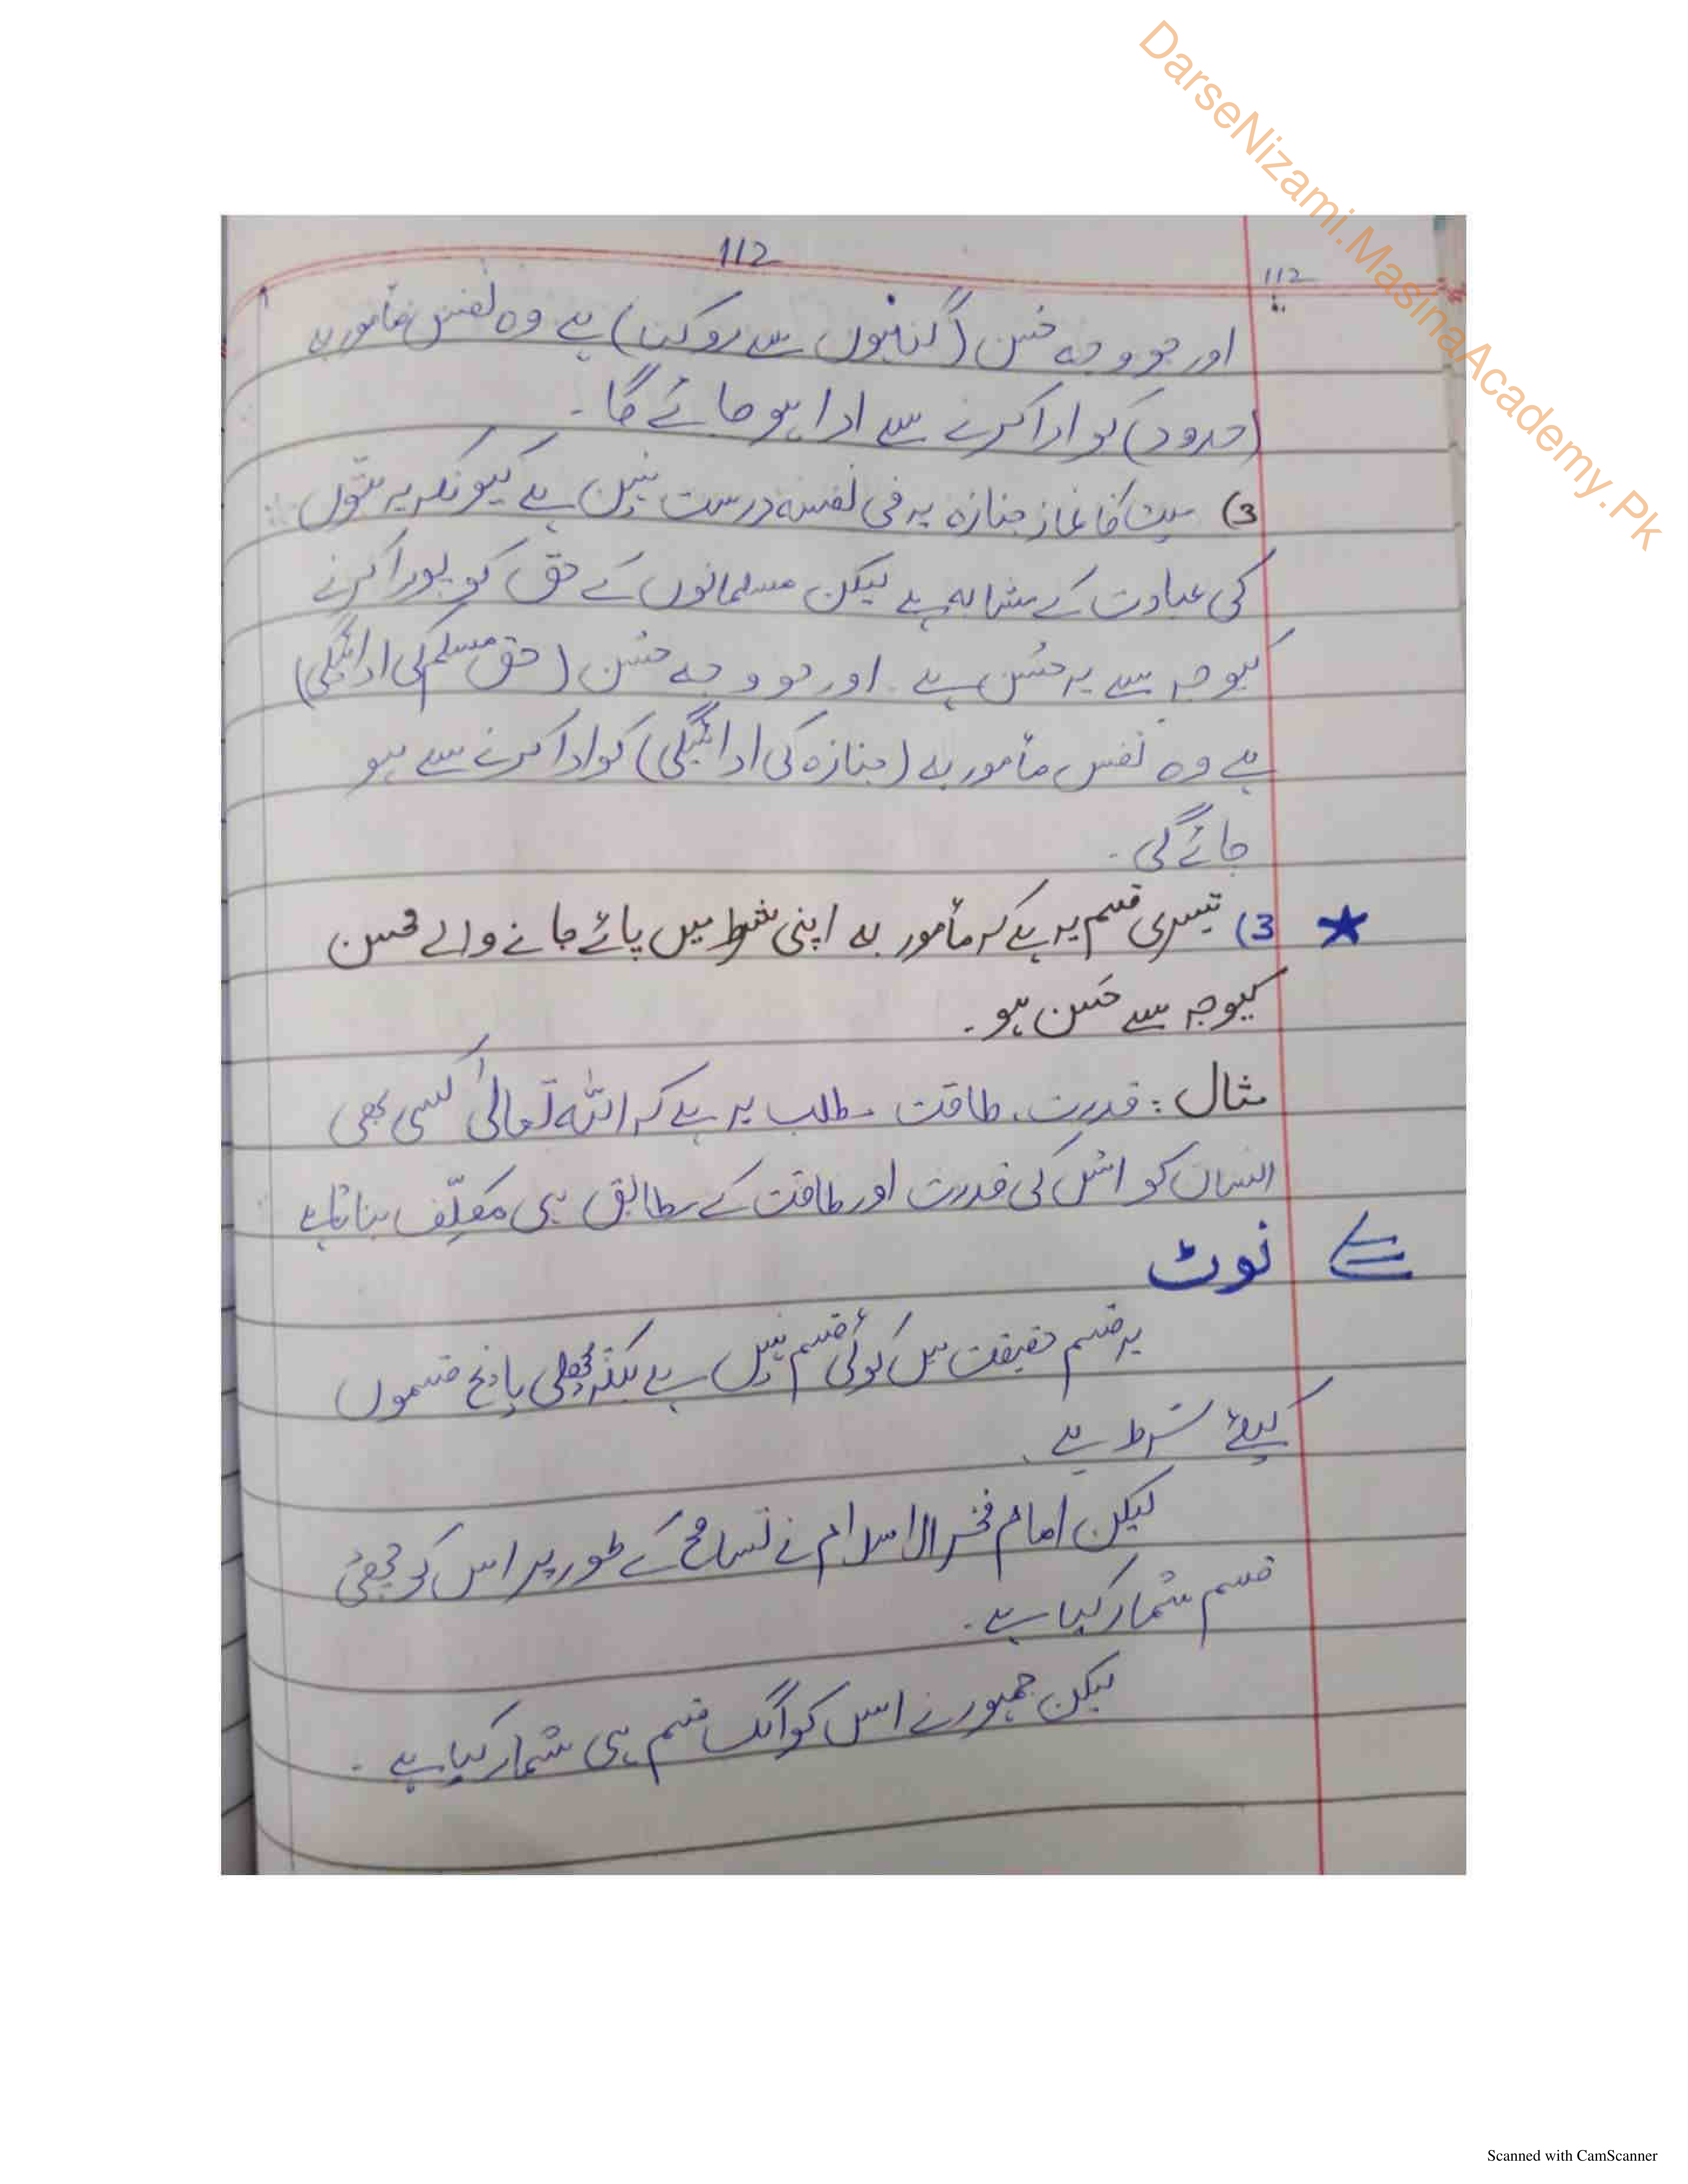 DarseNizami.MasinaAcademy.Pk
112
112
اور جو وجہ حُسن (گناہوں سے روکنا) ہے وہ نفس مأمور بہ
(حدود) کو ادا کرنے سے ادا ہو جائے گا۔
3) میت کا نماز جنازہ یہ فی نفسہ درست نہیں ہے کیونکہ یہ بتوں
کی عبادت کے مشابہ ہے لیکن مسلمانوں کے حق کو پورا کرنے
کیوجہ سے یہ حُسن ہے اور جو وجہ حُسن (حق مسلم کی ادائیگی)
ہے وہ نفس مأمور بہ (جنازہ کی ادائیگی) کو ادا کرنے سے ہو
جائے گی۔
★ 3) تیسری قسم یہ ہے کہ مأمور بہ اپنی شرط میں پائے جانے والے حسن
کیوجہ سے حَسن ہو۔
مثال : قدرت، طاقت ۔ مطلب یہ ہے کہ اللہ تعالیٰ کسی بھی
انسان کو اس کی قدرت اور طاقت کے مطابق ہی مکلّف بناتا ہے
نوٹ
یہ قسم حقیقت میں کوئی قسم نہیں ہے بلکہ پچھلی پانچ قسموں
کیلئے شرط ہے
لیکن امام فخر الاسلام نے تسامح کے طور پر اس کو چھٹی
قسم شمار کیا ہے۔
لیکن جمہور نے اس کو الگ قسم ہی شمار کیا ہے ۔
Scanned with CamScanner